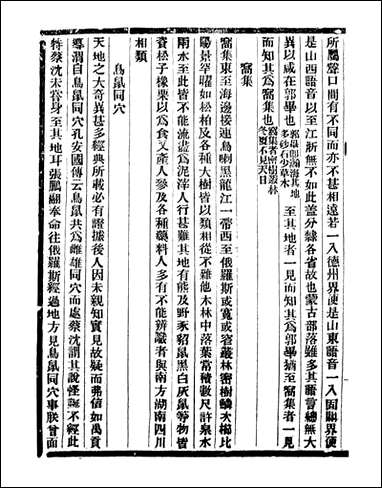 所屬聲口間有不同而亦不甚相遠若一入德州界便是山東語音一入固關界便
是山西語音以至江浙無不如此蓋分隸各省故也蒙古部落雖多其語音總無大
異以咸在郭學也郭學即瀚海其地多砂石少草水至其地者一見而知其爲郭學猶至窩集者一見
而知其爲窩集也窩集者密樹叢林冬夏不見天日
窩集
窩集東至海邊接連烏喇黑龍江一帶西至俄羅斯或寬或窄叢林密樹鱗次櫛比
陽景罕曜如松柏及各種大樹皆以類相從不雜他木林中落葉常積數尺許泉水
雨水至此皆不能流盡爲泥滓人行甚難其地有熊及野豕貂鼠黑白灰鼠等物皆
資松子橡栗以爲食又產人參及各種藥料人多有不能辨識者與南方湖南四川
相類
鳥鼠同穴
天地之大奇異甚多經典所載必有證據後人因未親知實見故疑而弗信如禹貢
導渭自鳥鼠同穴孔安國傳云鳥鼠共爲雌雄同穴而處蔡沈謂其說怪誕不經此
特蔡沈未嘗身至其地耳張鵬翮奉命往俄羅斯經過地方見鳥鼠同穴事朕曾面